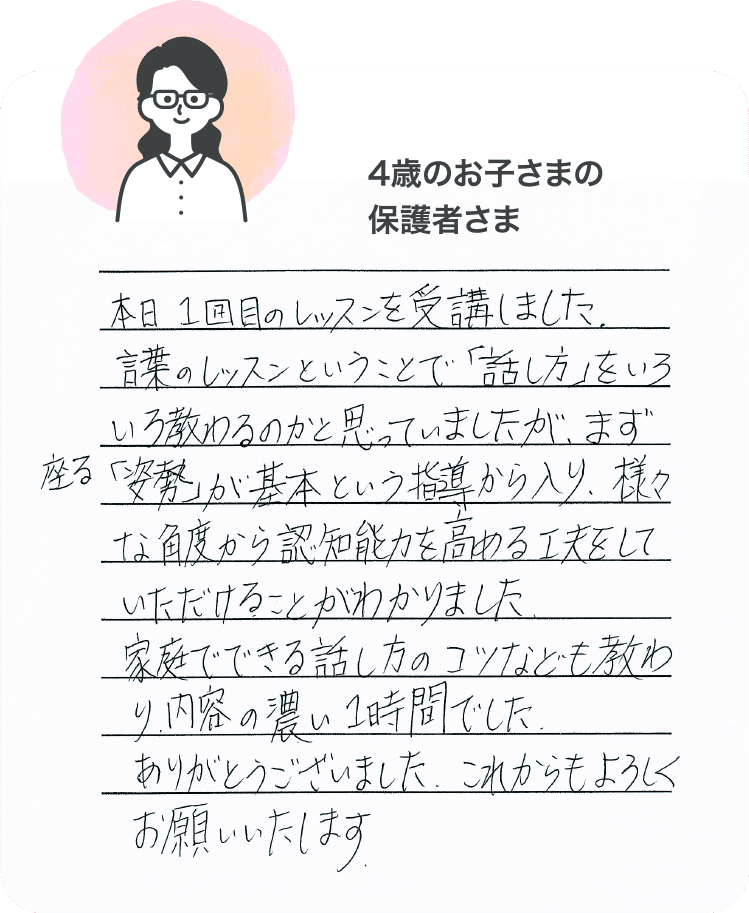 4歳のお子さまの
保護者さま
本日1回目のレッスンを受講しました。
言葉のレッスンということで「話し方」をいろ
いろ教わるのかと思っていましたが、まず
座る「姿勢」が基本という指導から入り、様々
な角度から認知能力を高める工夫をして
いただけることがわかりました。
家庭でできる話し方のコツなども教わ
り、内容の濃い1時間でした。
ありがとうございました。これからもよろしく
お願いいたします。